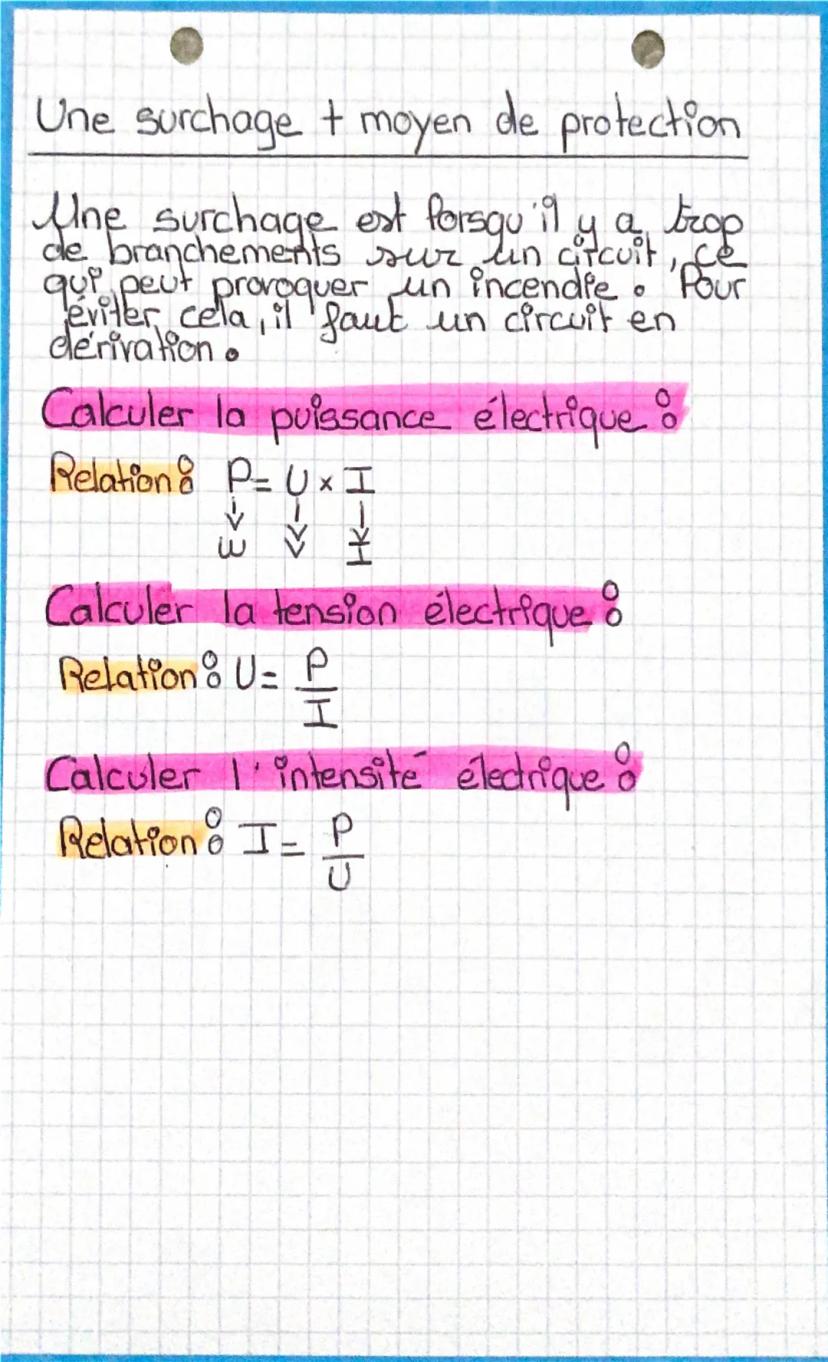 Une surchage + moyen de protection
Une surchage est lorsqu'il y a trop
de branchements sur un circuit, ce
qui peut provoquer un incendie. Pour
éviter cela, il faut un circuit en
dérivation.
Calculer la puissance électrique :
Relation : P = U × I
↓ ↓ ↓
W V I
Calculer la tension électrique :
Relation : U = P/I
Calculer l'intensité électrique :
Relation : I = P/U